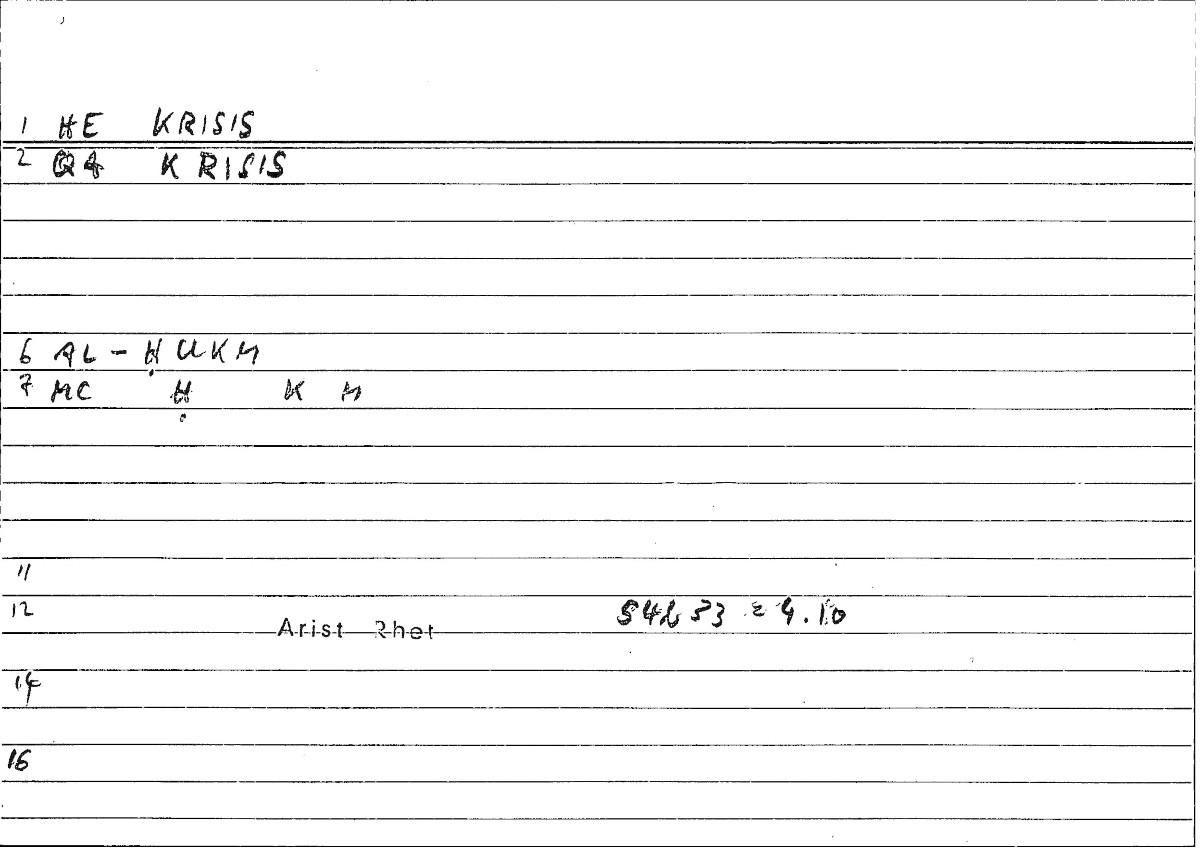 1 HE KRISIS
2 QA KRISIS
6 AL-ḤUKM
7 MC Ḥ K M
11
12 Arist Rhet 54b33 = 9.10
14
16